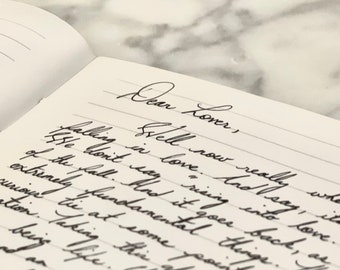 Dear Lover,
Well now really wh
falling in love. And say, i
We don't say " rising into love.
of the fall. And it goes back as
extremely fundamental things,
curious tie at some po
ation. Taking this
being life.